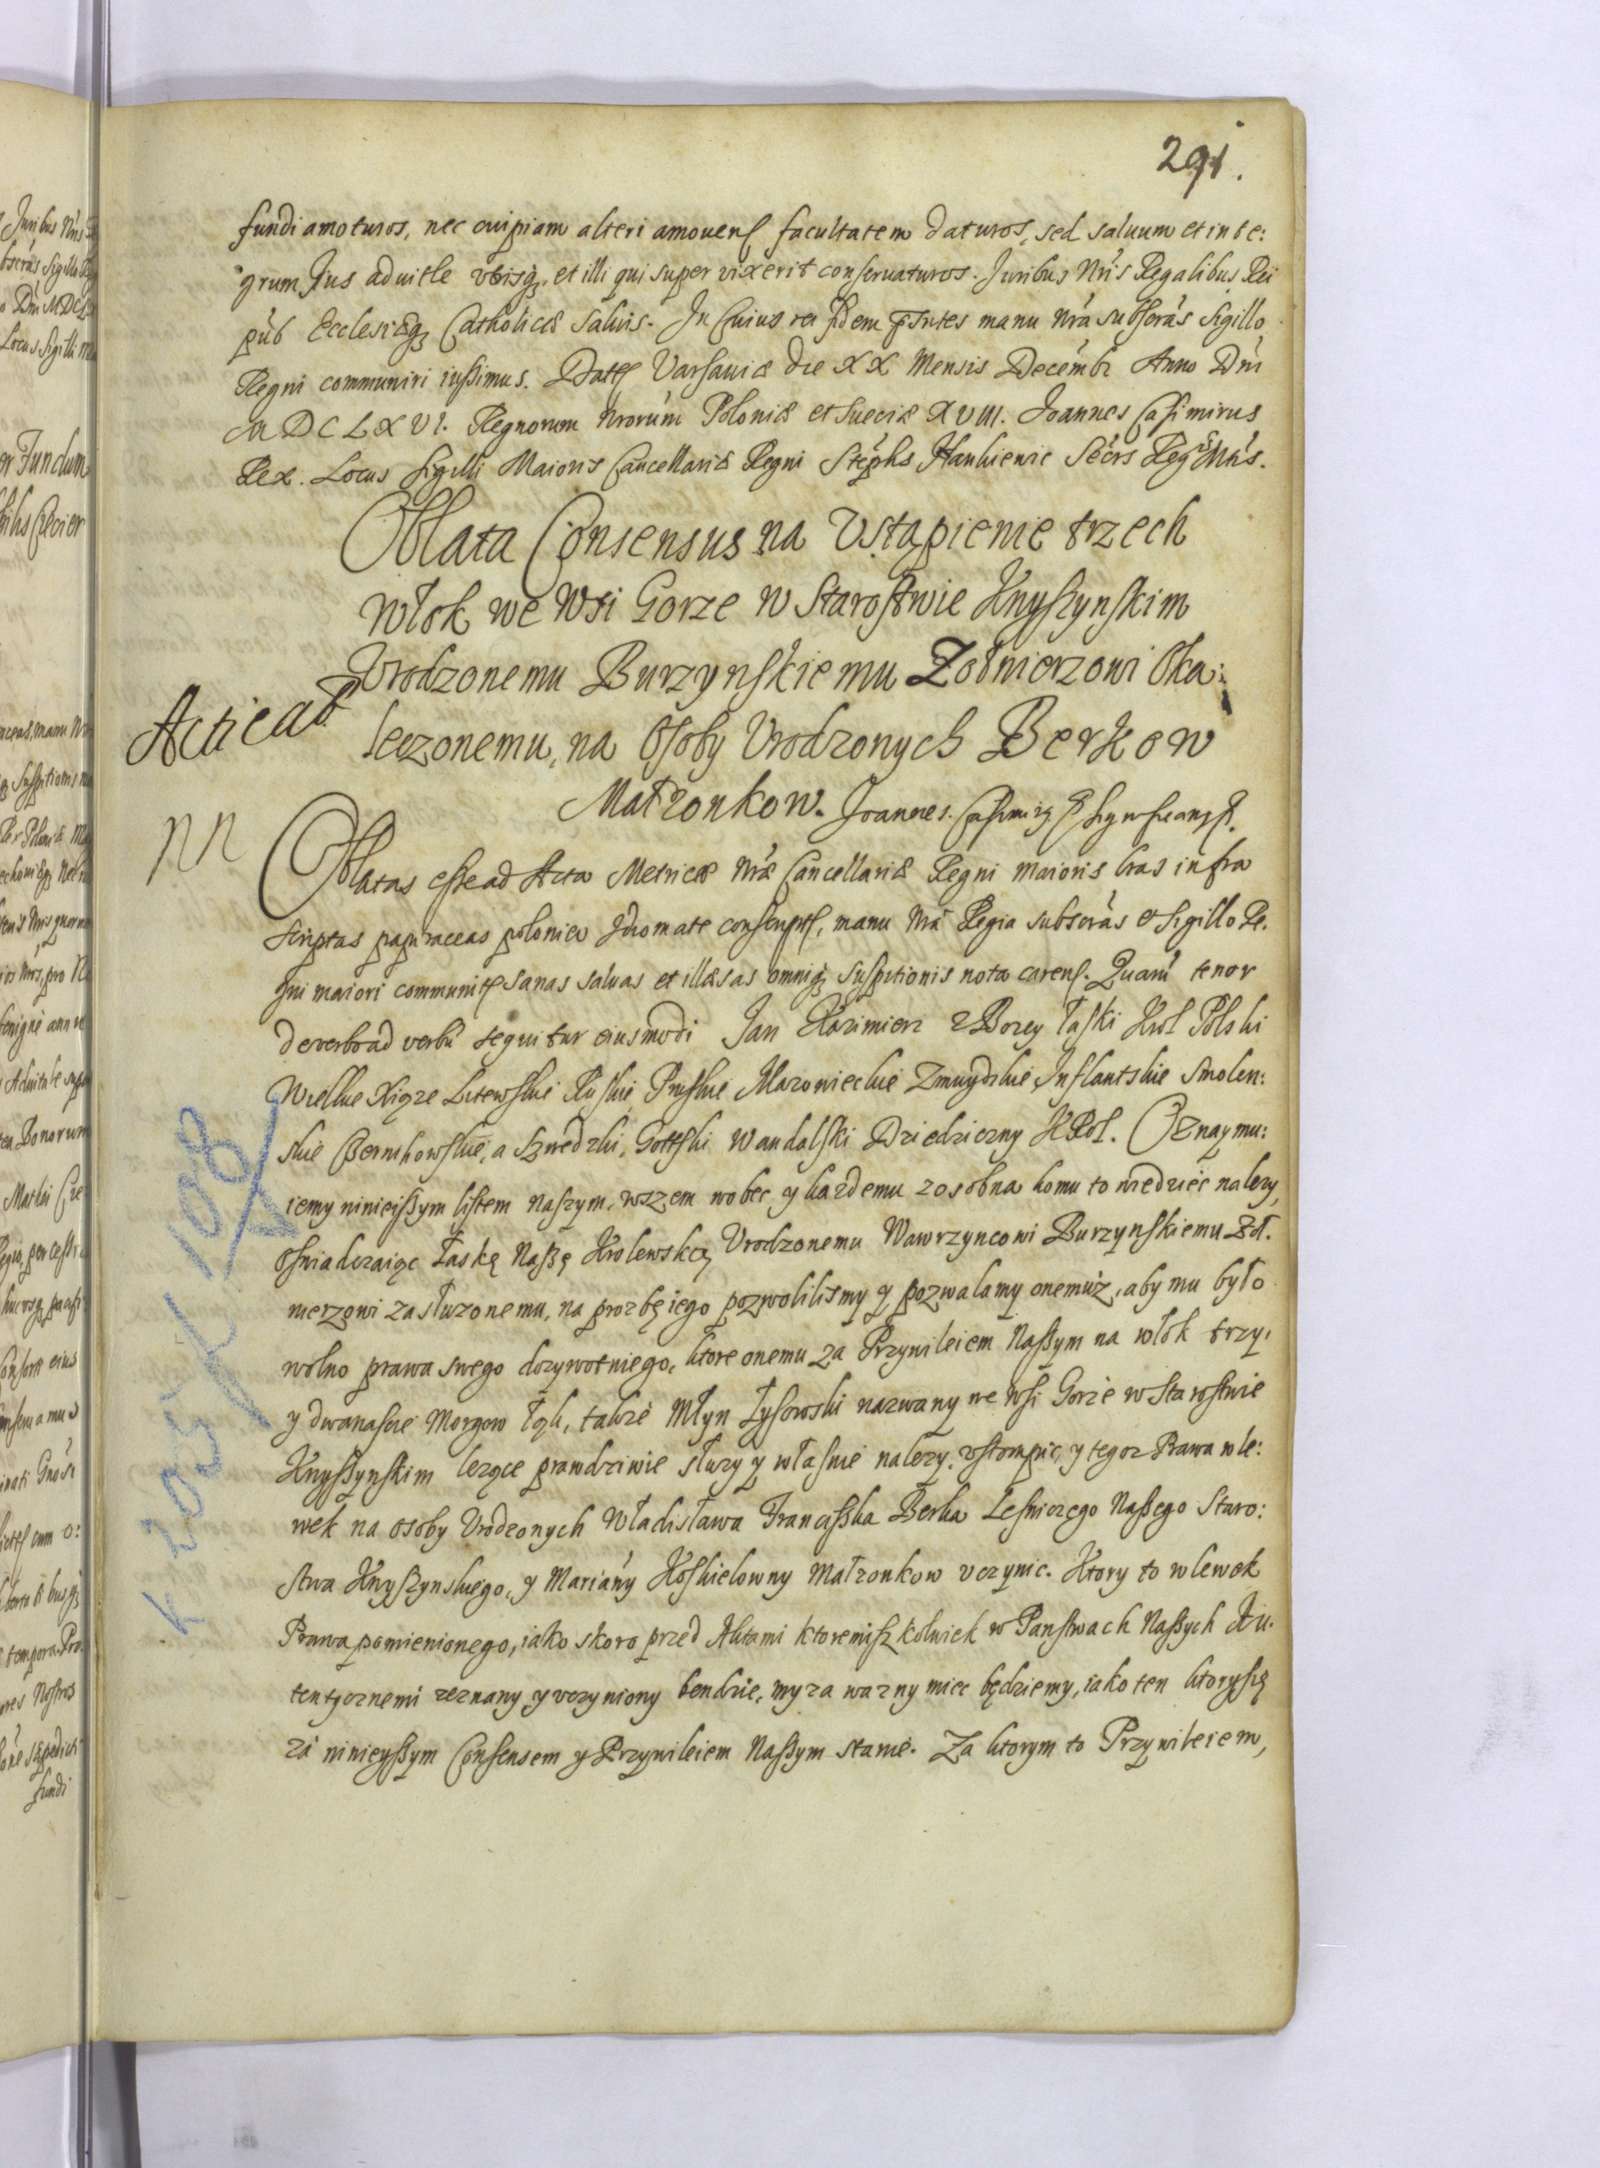 291.
fundi amoturos, nec cuipiam alteri amovenđ facultatem daturos, sed saluum et inte:
grum Jus aduitle utrisq; et illi qui super vixerit conseruaturos. Juribus Nris Regalibus Rei
pub Ecclesiæq; Catholicæ saluis. In Cuius rei fidem pntes manu nra subscras sigillo
Regni communiri iussimus. Datt Varsauiæ die XX Mensis Decembr Anno Dni
MDCLXVI. Regnorum Nrorum Poloniæ et Sueciæ XVIII. Joannes Casimirus
Rex. Locus Sigilli Maioris Cancellariæ Regni Stephs Hankiewic Secrs Rgæ Mtis.
Oblata Consensus na Vstąpienie trzech
włok we Wsi Gorze w Starostwie Knyszynskim
Vrodzonemu Burzynskiemu Zołnierzowi Oka:
leczonemu, na Osoby Vrodzonych Berkow
Małzonkow. Joannes Casimirq
Acticat
NN
Oblatas esse ad Acta Metricæ Nræ Cancellariæ Regni maioris lras infra
scriptas papiraceas polonico Idiomate conscript, manu Nra Regia subscras et sigillo Re.
gni maiori communit sanas saluas et illæsas omniq; suspitionis nota carent. Quaru tenor
de verbo ad verbu sequitur eiusmodi Jan Kazimierz z Bozey łaski Krol Polski
Wielkie Xiąze Litewskie Ruskie Pruskie Mazowieckie Zmuydzkie Inflantskie Smolen:
skie Czernihowskie, a Szwedzki, Gottski Wandalski Dziedziczny KRol. Oznaymu:
iemy ninieiszym listem naszym, wszem wobec y kazdemu zosobna komu to wiedziec nalezy,
Oswiadczaiąc łaskę Naszę Krolewską Vrodzonemu Wawrzyncowi Burzynskiemu Zoł.
nierzowi zasłuzonemu, na prozbę iego pozwolilismy y pozwalamy onemuz, aby mu było
wolno prawa swego dozywotniego, ktore onemu za Przywileiem Naszym na włok trzy,
y dwanascie Morgow łąk, takze Młyn Łysowski nazwany we Wsi Gorze w Starostwie
Knyszynskim lezące prawdziwie słuzy y własnie nalezy, vstompic, y tegoz Prawa wle:
wek na osoby Vrodzonych Władisława Franciszka Berka Lesniczego Naszego Staro:
stwa Knyszynskiego, y Mariany Koskielowny Małzonkow vczynic. Ktory to wlewek
Prawa pomienionego, iako skoro przed Aktami ktoremiszkolwiek w Panstwach Naszych Au.
tentycznemi zeznany y vczyniony bendzie, my za wazny miec będziemy, iako ten ktory się
za ninieyszym Consensem y Przywileiem Naszym stanie. Za ktorym to Przywileiem,